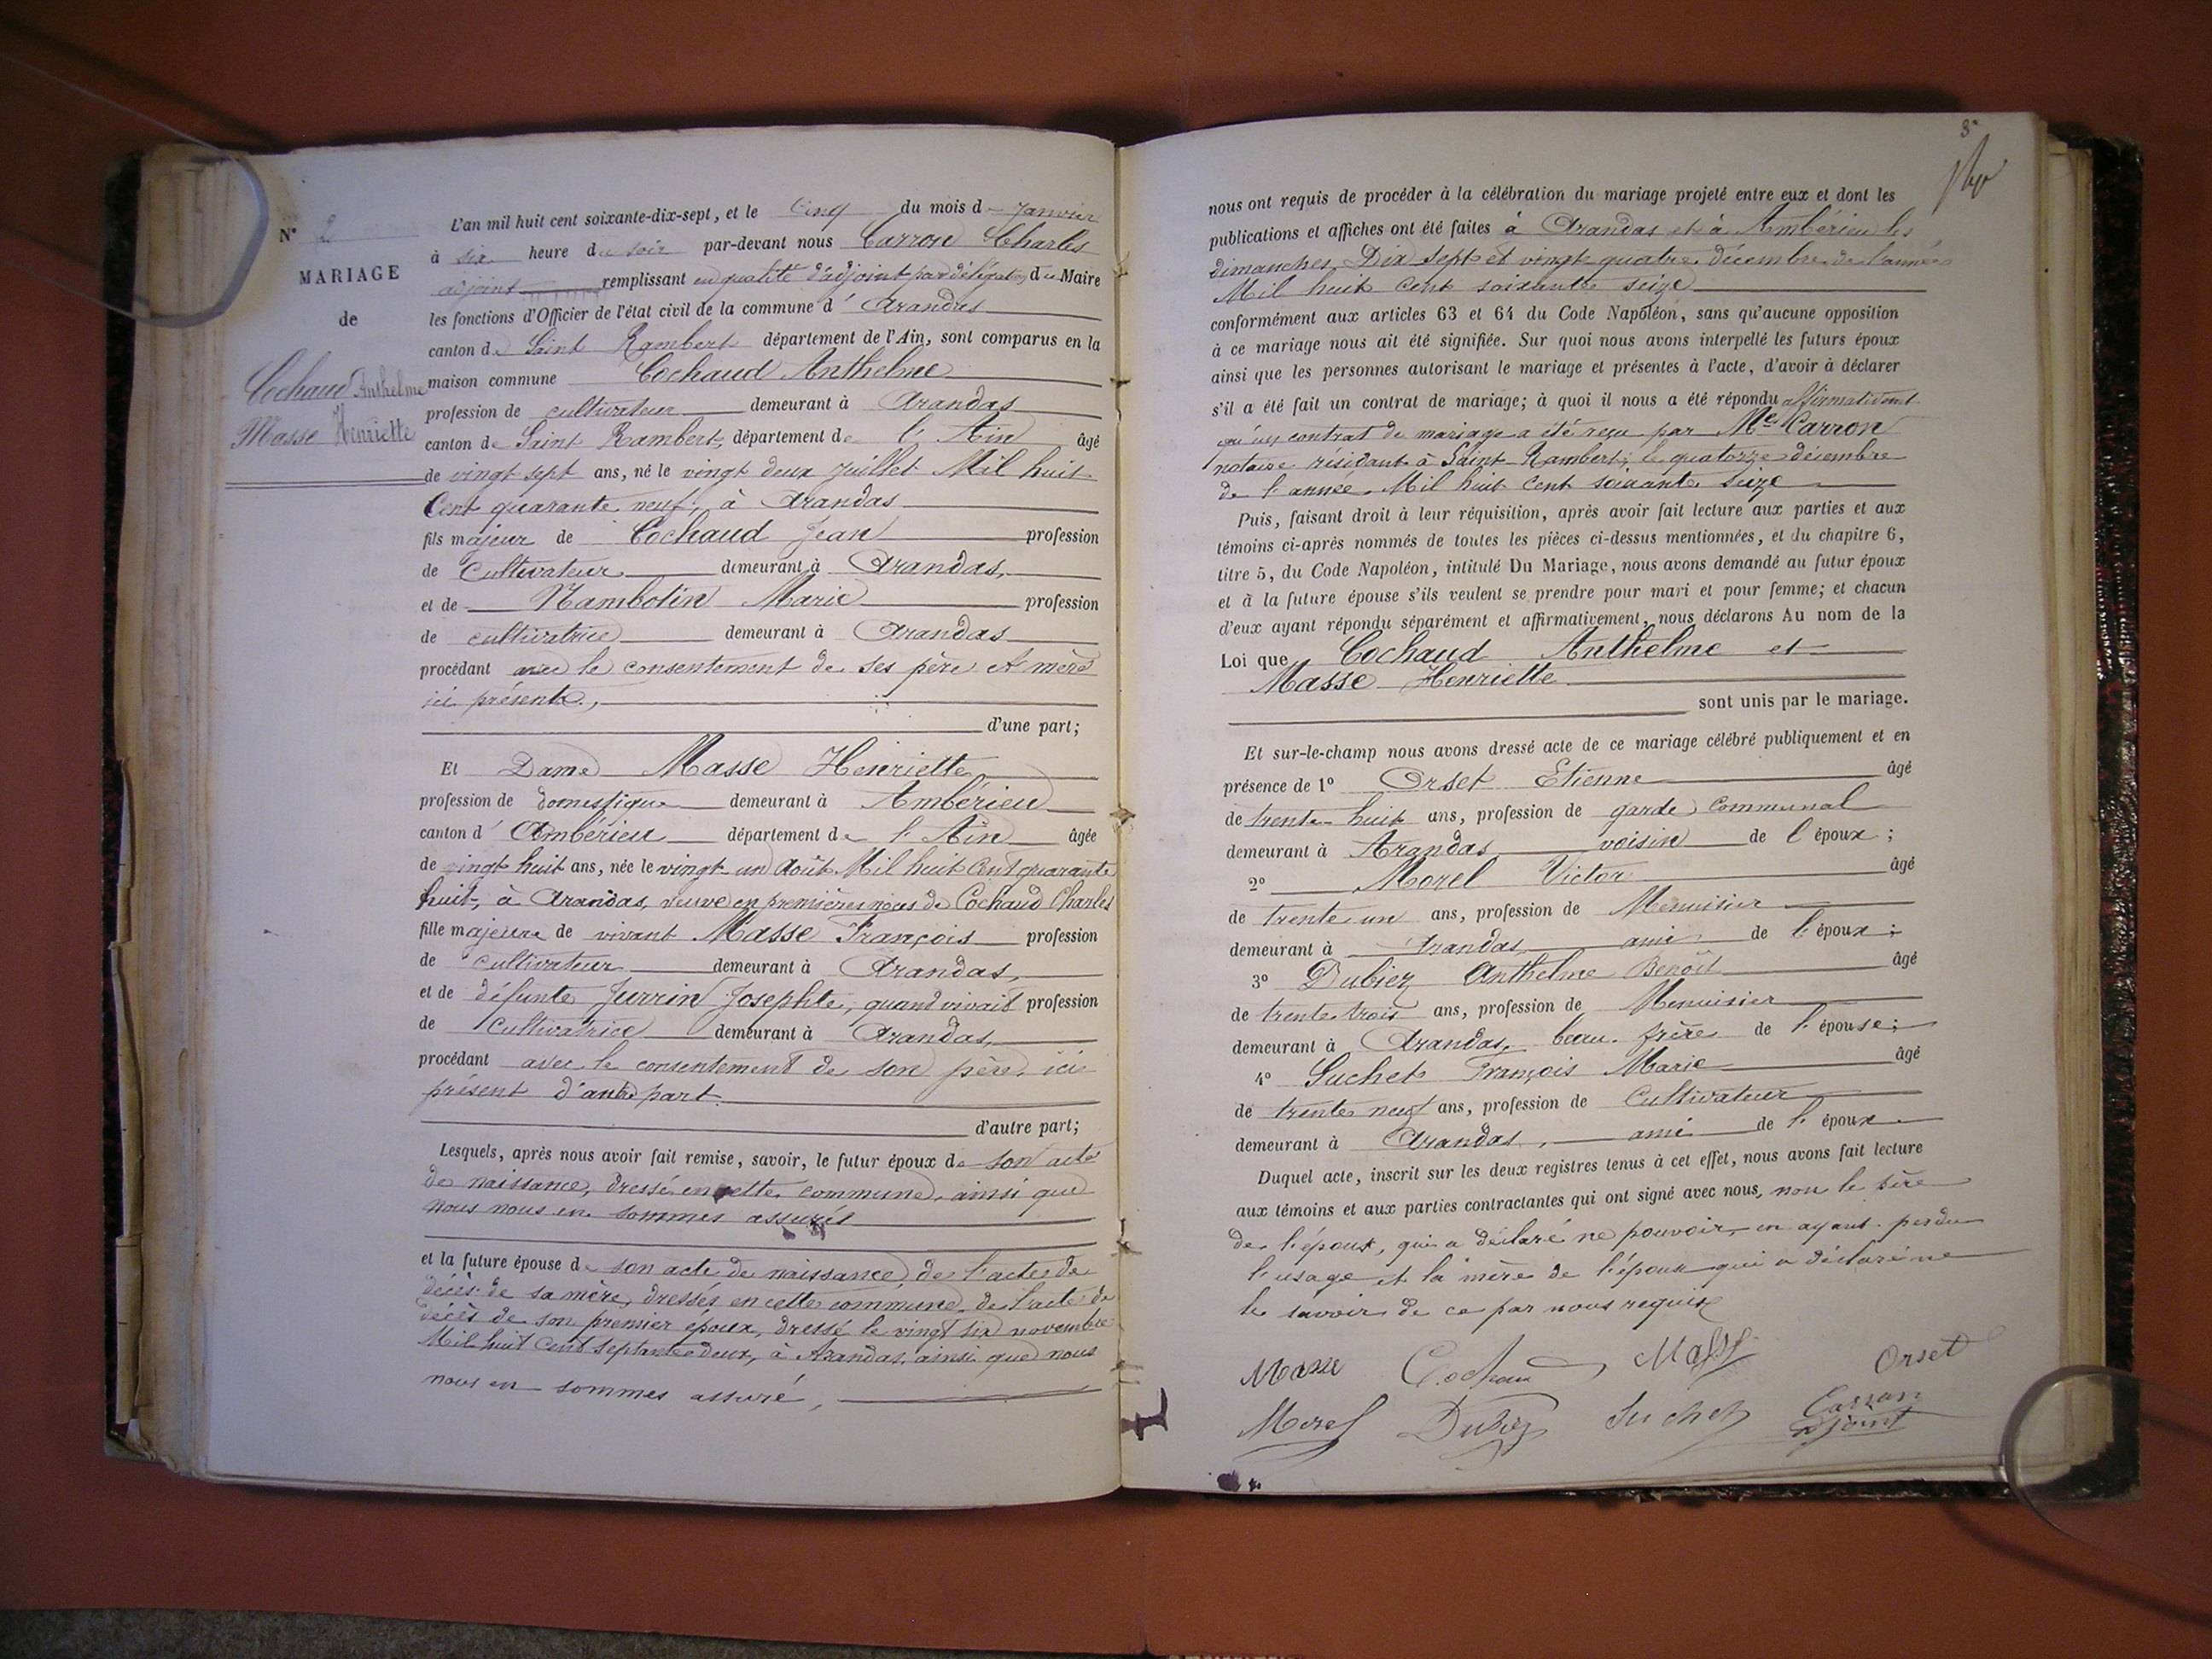 N° 2
MARIAGE
de
Cochaud Anthelme
Masse Henriette
L'an mil huit cent soixante-dix-sept, et le Cinq du mois d Janvier
à six heure du soir par-devant nous Carron Charles
adjoint remplissant en qualité d'adjoint par délégation du Maire
les fonctions d'Officier de l'état civil de la commune d' Arandas
canton de Saint Rambert département de l'Ain, sont comparus en la
maison commune Cochaud Anthelme
profession de cultivateur demeurant à Arandas
canton de Saint Rambert, département de l'Ain âgé
de vingt sept ans, né le vingt deux juillet Mil huit
Cent quarante neuf, à Arandas
fils majeur de Cochaud Jean profession
de Cultivateur demeurant à Arandas,
et de Nambotin Marie profession
de cultivatrice demeurant à Arandas
procédant avec le consentement de ses père et mère
ici présents,
d'une part;
Et Dame Masse Henriette
profession de domestique demeurant à Ambérieu
canton d' Ambérieu département de l'Ain âgée
de vingt huit ans, née le vingt un Août Mil huit cent quarante
huit, à Arandas, veuve en premières noces de Cochaud Charles
fille majeure de vivant Masse François profession
de cultivateur demeurant à Arandas,
et de défunte Jurrin Josephte, quand vivait profession
de Cultivatrice demeurant à Arandas,
procédant avec le consentement de son père, ici
présent d'autre part
d'autre part;
Lesquels, après nous avoir fait remise, savoir, le futur époux de son acte
de naissance, dressé en cette commune, ainsi que
nous nous en sommes assurés
et la future épouse de son acte de naissance, de l'acte de
décès de sa mère, dressés en cette commune, de l'acte de
décès de son premier époux, dressé le vingt six novembre
Mil huit Cent septante deux, à Arandas, ainsi que nous
nous en sommes assuré,
8
nous ont requis de procéder à la célébration du mariage projeté entre eux et dont les
publications et affiches ont été faites à Arandas et à Ambérieu les
dimanches Dix sept et vingt quatre décembre de l'année
Mil huit Cent soixante seize
conformément aux articles 63 et 64 du Code Napoléon, sans qu'aucune opposition
à ce mariage nous ait été signifiée. Sur quoi nous avons interpellé les futurs époux
ainsi que les personnes autorisant le mariage et présentes à l'acte, d'avoir à déclarer
s'il a été fait un contrat de mariage; à quoi il nous a été répondu affirmativement
qu'un contrat de mariage a été reçu par Me Carron
notaire résidant à Saint-Rambert, le quatorze décembre
de l'année Mil huit Cent soixante seize
Puis, faisant droit à leur réquisition, après avoir fait lecture aux parties et aux
témoins ci-après nommés de toutes les pièces ci-dessus mentionnées, et du chapitre 6,
titre 5, du Code Napoléon, intitulé Du Mariage, nous avons demandé au futur époux
et à la future épouse s'ils veulent se prendre pour mari et pour femme; et chacun
d'eux ayant répondu séparément et affirmativement, nous déclarons Au nom de la
Loi que Cochaud Anthelme et
Masse Henriette
sont unis par le mariage.
Et sur-le-champ nous avons dressé acte de ce mariage célébré publiquement et en
présence de 1° Orset Etienne âgé
de trente-huit ans, profession de garde communal
demeurant à Arandas voisin de l'époux;
2° Morel Victor âgé
de trente un ans, profession de Menuisier
demeurant à Arandas, ami de l'époux;
3° Dubiez Anthelme Benoît âgé
de trente trois ans, profession de Menuisier
demeurant à Arandas, beau-frère de l'épouse;
4° Suchet François Marie âgé
de trente neuf ans, profession de Cultivateur
demeurant à Arandas, ami de l'époux
Duquel acte, inscrit sur les deux registres tenus à cet effet, nous avons fait lecture
aux témoins et aux parties contractantes qui ont signé avec nous, non le père
de l'époux, qui a déclaré ne pouvoir, en ayant perdu
l'usage et la mère de l'époux qui a déclaré ne
le savoir de ce par nous requis
Masse Cochaud Masse Orset
Morel Dubiez Suchet Carron
adjoint